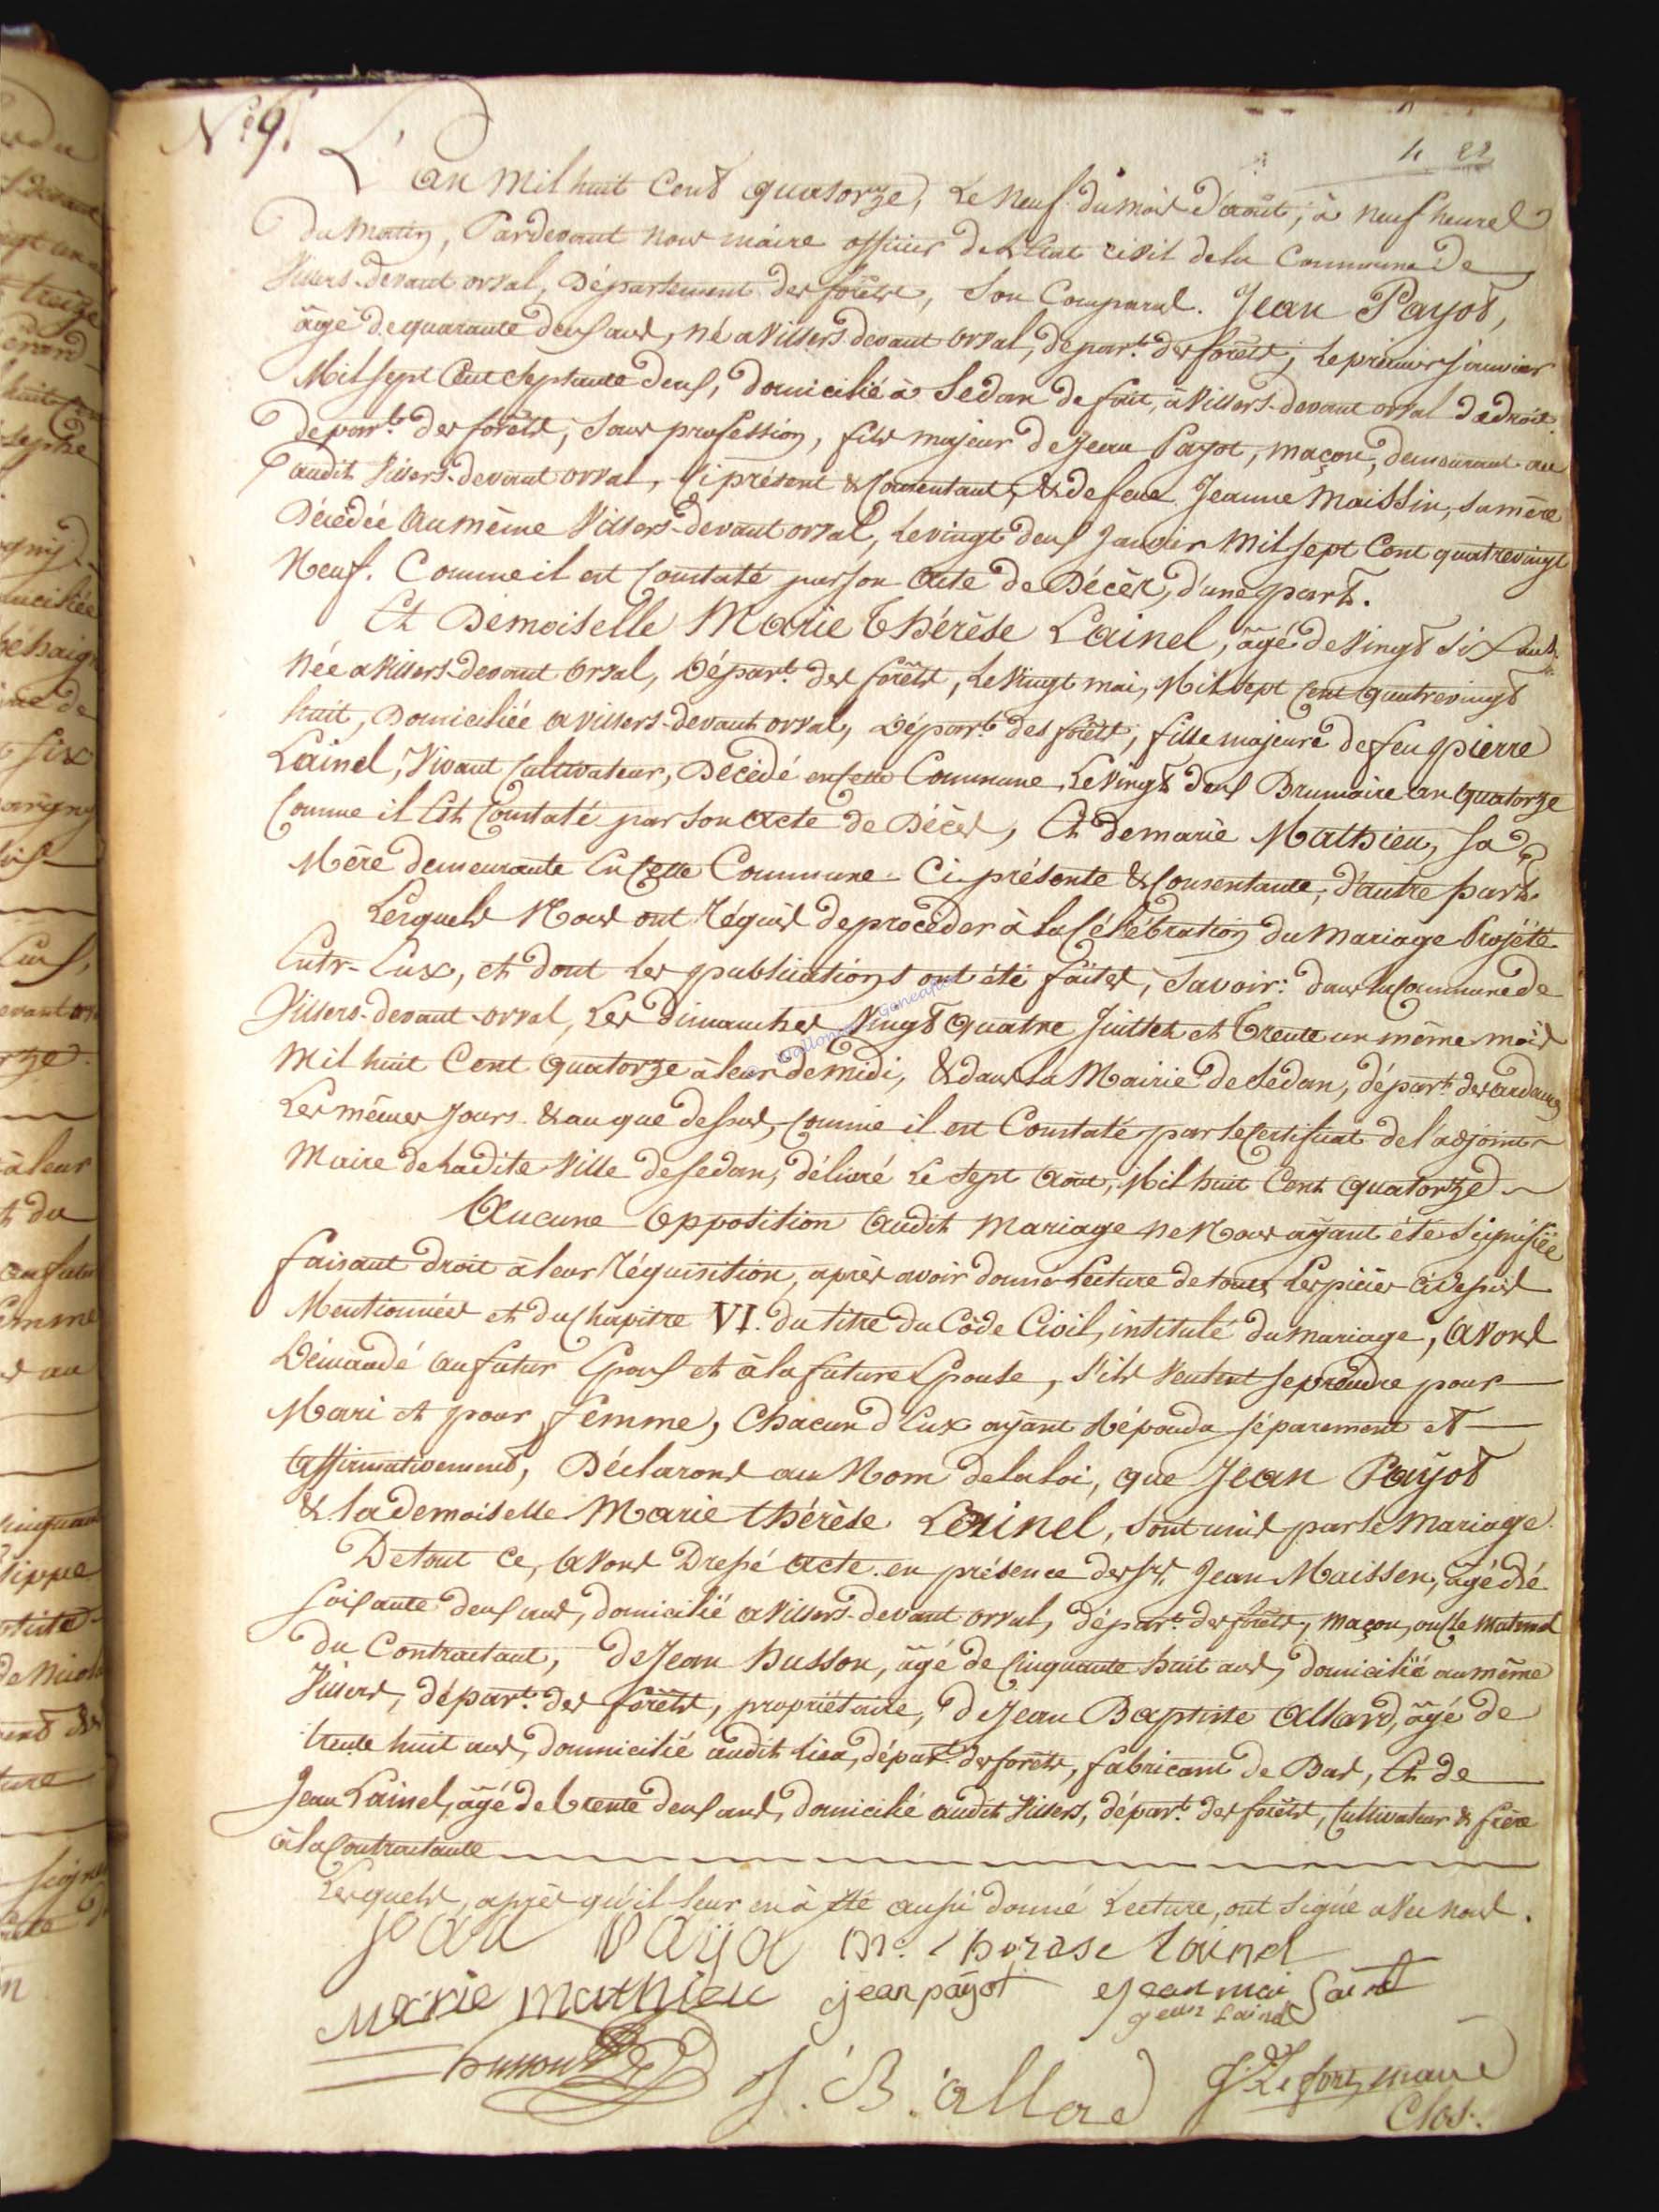 N.o 9.
4 22
L'an Mil huit Cent quatorze, Le Neuf du mois d'août, à neuf heures
du Matin, Pardevant nous maire officier de L'Etat civil de la Commune De
Villers-devant orval, Département des forêts, Son Comparus. Jean Payot,
âgé de quarante deux ans, né a Villers devant Orval, depart.t des forêts, le premier janvier
Mil sept Cent Septante deux, domicilié à Sedan de fait, à Villers-devant orval de droit
depart.t des forêts, sans profession, fils majeur de Jean Payot, maçon, demeurant au
audit Villers-devant orval, Ci présent & Consentant, & de feue Jeanne Maissin, sa mère
Décédée au même Villers-devant orval, le vingt deux Janvier Mil sept Cent quatrevingt
Neuf. Comme il est Constaté par son Acte de Décès, d'une part.
Et Demoiselle Marie Thérèse Lainel, âgé de Vingt Six ans.
née a Villers-devant Orval, Départ.t des forêts, le Vingt mai, Mil sept Cent quatrevingt
huit, Domiciliée a Villers-devant orval, Départ.t des forêts, fille majeure de feu pierre
Lainel, Vivant Cultivateur, Décédé en Cette Commune, Le Vingt deux Brumaire an quatorze
Comme il Est Constaté par son Acte de Décès, Et de marie Mathieu, sa
Mère demeurante En Cette Commune Ci présente & Consentante, d'autre part.
Lesquels Nous ont réquis de procéder à la Célébration du Mariage Projété
Entr-Eux, et dont les publications ont été faites, Savoir: dans la Commune de
Villers-devant-orval, Les dimanches Vingt quatre Juillet et trente un même mois
Mil huit Cent quatorze à leur de midi, & dans la Mairie de Sedan, départ.t des ardennes
Les mêmes Jours & an que dessus, comme il est Constaté par le Certificat de l'adjoint
Maire de Ladite Ville de Sedan, délivré Le Sept Août, Mil huit Cent quatorze
Aucune Opposition Audit Mariage ne Nous ayant été Signifiée
faisant droit à leur réquisition, après avoir donné Lecture de toutes les pièces ci dessus
Mentionnées et du Chapitre VI. du titre du Code Civil, intitulé du mariage, Avons
Démandé au futur Epoux et à la future Epouse, s'ils Veulent se prendre pour
Mari et pour femme, Chacun d'Eux ayant Répondu séparement et
affirmativement, Déclarons au Nom de la loi, que Jean Payot
& la demoiselle Marie thérèse Lainel, sont unis par le Mariage.
De tout Ce, Avons Dressé Acte en présence des Srs. Jean Maissen, âgé de
soixante deux ans, domicilié a Villers-devant orval, départ.t des forêts, Maçon, oncle Maternel
du Contractant, de Jean Husson, âgé de Cinquante huit ans, domicilié au même
Villers, départ.t des forêts, propriétaire, de Jean Baptiste Allard, âgé de
trente huit ans, domicilié audit Lieu, départ.t des forêts, fabricant de Bas, Et de
Jean Lainel, âgé de trente deux ans, domicilié audit Villers, départ.t des forêts, Cultivateur & frère
à la Contractante
Lesquels, après qu'il leur en à été aussi donné Lecture, ont signé avec nous.
Jean payot m. therese Lainel
Marie Mathieu jean payot Jean mai Saint
jean Lainel
husson J. B. allard J. Lefort, maire
Clos.